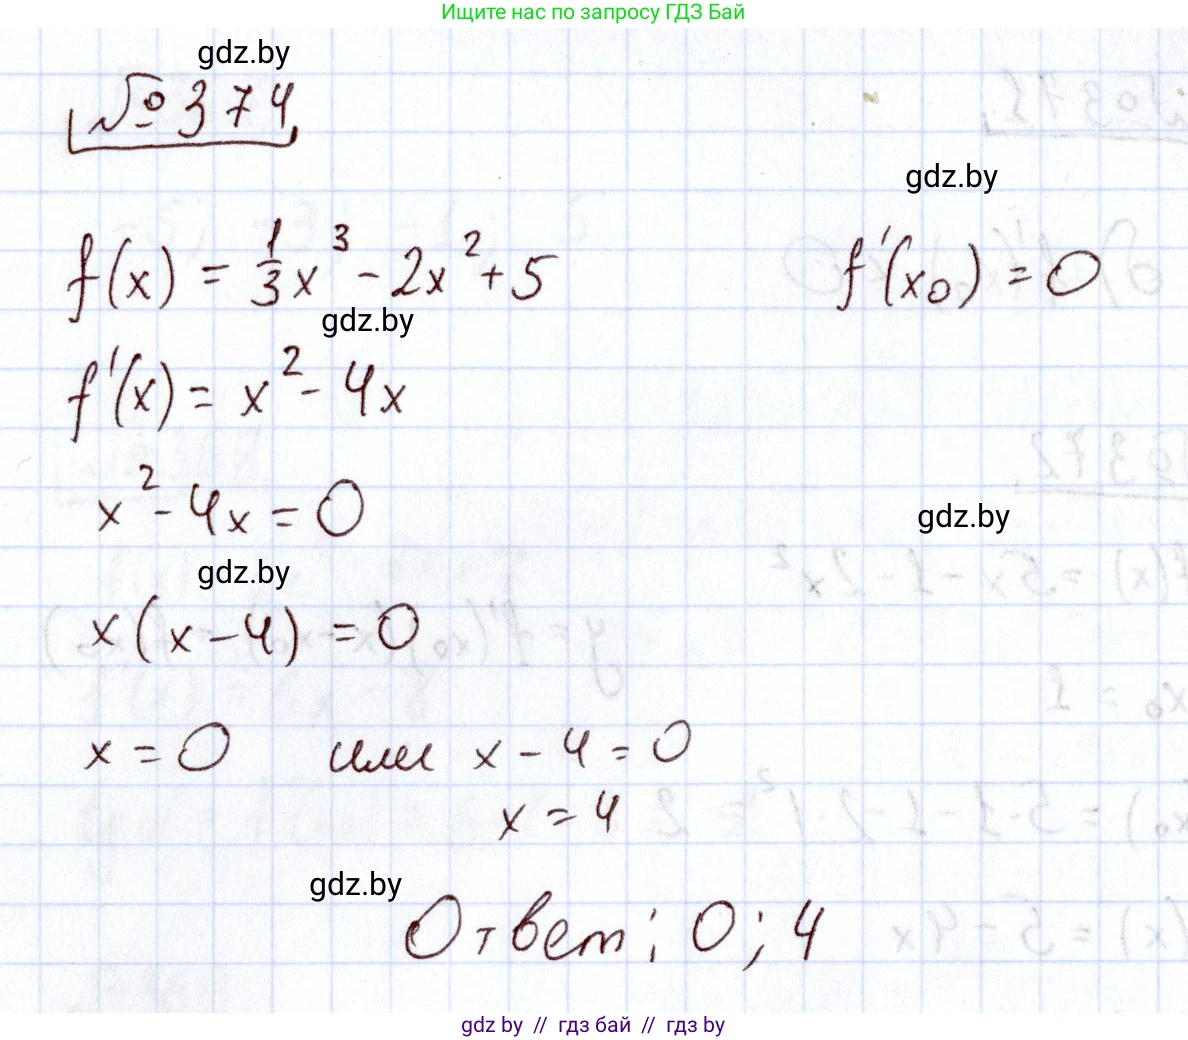 Ищите нас по запросу ГДЗ Бай
gdz.by
№374
gdz.by
f(x) = 1/3 x³ - 2x² + 5
f'(x₀) = 0
gdz.by
f'(x) = x² - 4x
x² - 4x = 0
gdz.by
gdz.by
x(x - 4) = 0
x = 0 или x - 4 = 0
x = 4
gdz.by
Ответ: 0; 4
gdz by // гдз бай // гдз by